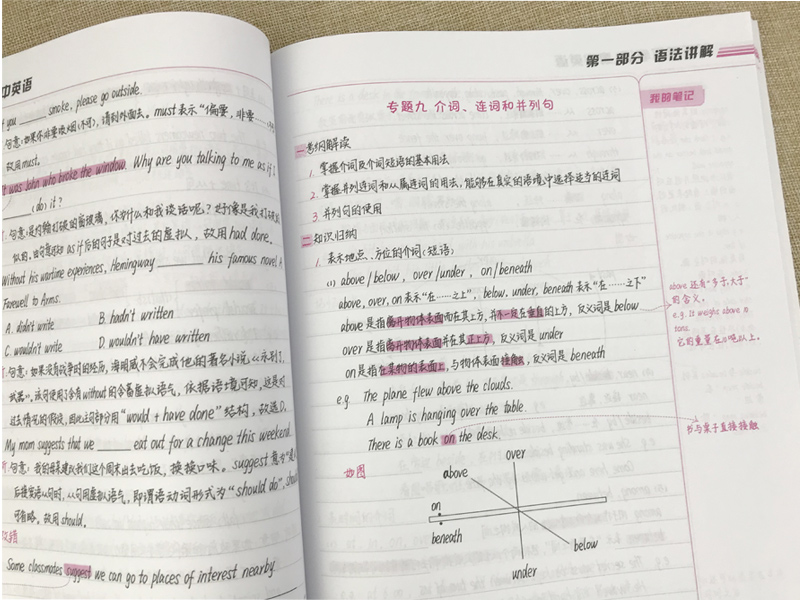 中英语
you ____ smoke, please go outside.
句意:如果你非要吸烟(不可),请到外面去。must表示“偏要,非要
故用must.
It was John who broke the window. Why are you talking to me as if I
____ (do) it?
句意:是约翰打破的窗玻璃,你为什么和我谈话呢?好像是我打破
似的。由句意可知 as if 后的句子是对过去的虚拟,故用 had done.
Without his wartime experiences, Hemingway ____ his famous novel A
Farewell to Arms.
A. didn't write B. hadn't written
C. wouldn't write D. wouldn't have written
句意:如果没有战争时的经历,海明威不会完成他的著名小说《永别了,
武器》。该句使用了含有without的含蓄虚拟语气,依据语境可知,这是对
过去情况的假设,因此主句部分用“would + have done”结构,故选D.
My mom suggests that we ____ eat out for a change this weekend.
句意:我的母亲建议我们这个周末出去吃饭,换换口味。suggest意为“建
后接宾语从句时,从句用虚拟语气,即谓语动词形式为“should do”, should
可省略,故用should.
改错
Some classmates suggest we can go to places of interest nearby
第一部分 语法讲解
专题九 介词、连词和并列句
我的笔记
一 考纲解读
1. 掌握介词及介词短语的基本用法
2. 掌握并列连词和从属连词的用法,能够在真实的语境中选择适当的连词
3. 并列句的使用
二 知识归纳
1. 表示地点、方位的介词(短语)
(1) above/below, over/under, on/beneath
above, over, on表示“在……之上”, below, under, beneath表示“在……之下”
above是指离开物体表面而在其上方,并不一定在垂直的上方,反义词是below
over是指离开物体表面并在其正上方,反义词是under
on是指在某物的表面上,与物体表面接触,反义词是beneath
e.g. The plane flew above the clouds.
A lamp is hanging over the table.
There is a book on the desk.
above 还有“多于,大于”
的含义。
e.g. It weighs above
tons.
它的重量在
吨以上。
书与桌子直接接触
如图
over
above
on
beneath
below
under